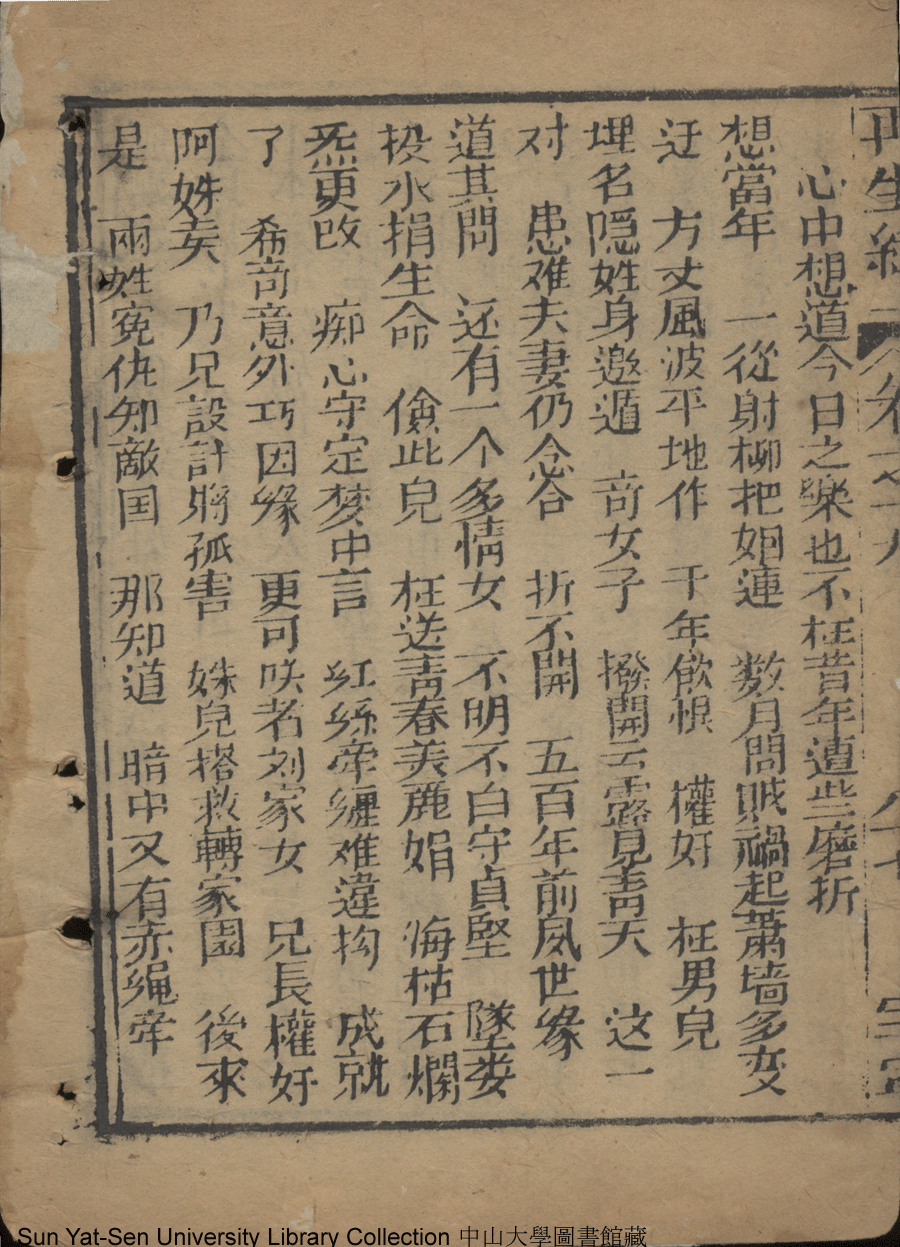 再生緣
心中想道今日之樂也不枉昔年遭些磨折
想當年　一從射柳把姻連　数月問賊禍起蕭墻多变
迂　方丈風波平地作　千年飲恨　權奸　枉男兒
埋名隠姓身遨遁　奇女子　撥開云露見青天　这一
对　患难夫妻仍念合　折不開　五百年前夙世缘
道其問　还有一个多情女　不明不白守貞堅　墜娄
投水捐生命　儉此兒　枉送青春美麗娟　海枯石爛
炁更改　痴心守定梦中言　紅絲牵纏难違拘　成就
了　希奇意外巧因缘　更可咲者刘家女　兄長權奸
阿姝卖　乃兄設計將孤害　姝兒搭救轉家園　後來
是　兩姓寃仇知敵国　那知道　暗中又有赤縄牵
Sun Yat-Sen University Library Collection 中山大學圖書館藏